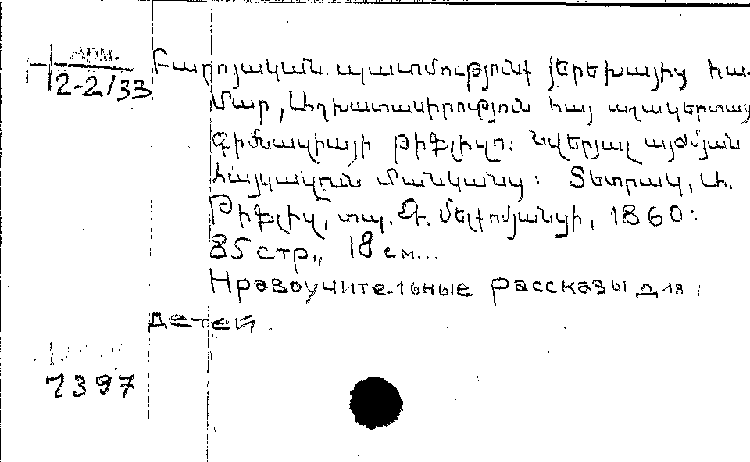 АРМ.
2-2/33
Բարոյական պատմությունք յերեխայից հա-
մար, Աշխատասիրություն հայ աշակերտաց
Գիմնազիայի Թիֆլիզո: նվերյալ այժմյան
հայկական մանկանց: Տետրակ, Ա.
Թիֆլիզ, տպ. Յ. Մելքումյանցի, 1860:
85 стр., 18 см...
Нравоучительные рассказы для
детей.
7397